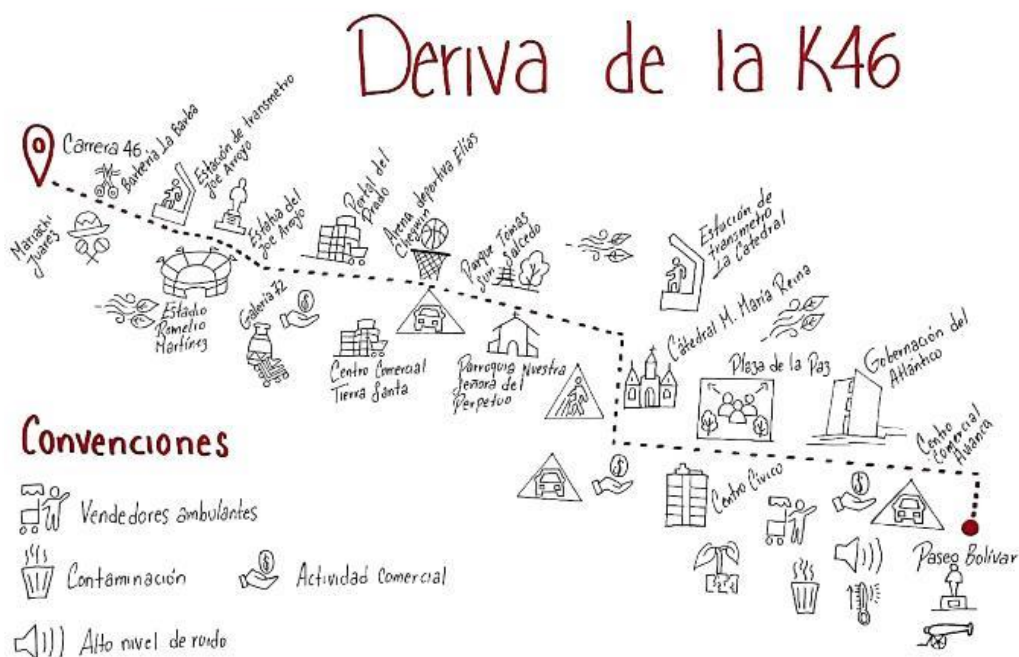 Deriva de la K46
Carrera 46
Barbería La Barba
Estación de transmetro
Joe Arroyo
Mariachi
Juares
Estatua del
Joe Arroyo
Estadio
Romelio
Martínez
Galería 72
Portal del
Prado
Centro Comercial
Tierra Santa
Arena deportiva Elías
Chegwin
Parque Tómas
Suri Salcedo
Parroquia Nuestra
Señora del
Perpetuo
Estación de
transmetro
La Catedral
Cátedral M. María Reina
Plaza de la Paz
Gobernación del
Atlántico
Centro
Comercial
Avianca
Centro Cívico
Paseo Bolívar
Convenciones
Vendedores ambulantes
Contaminación
Actividad Comercial
Alto nivel de ruido